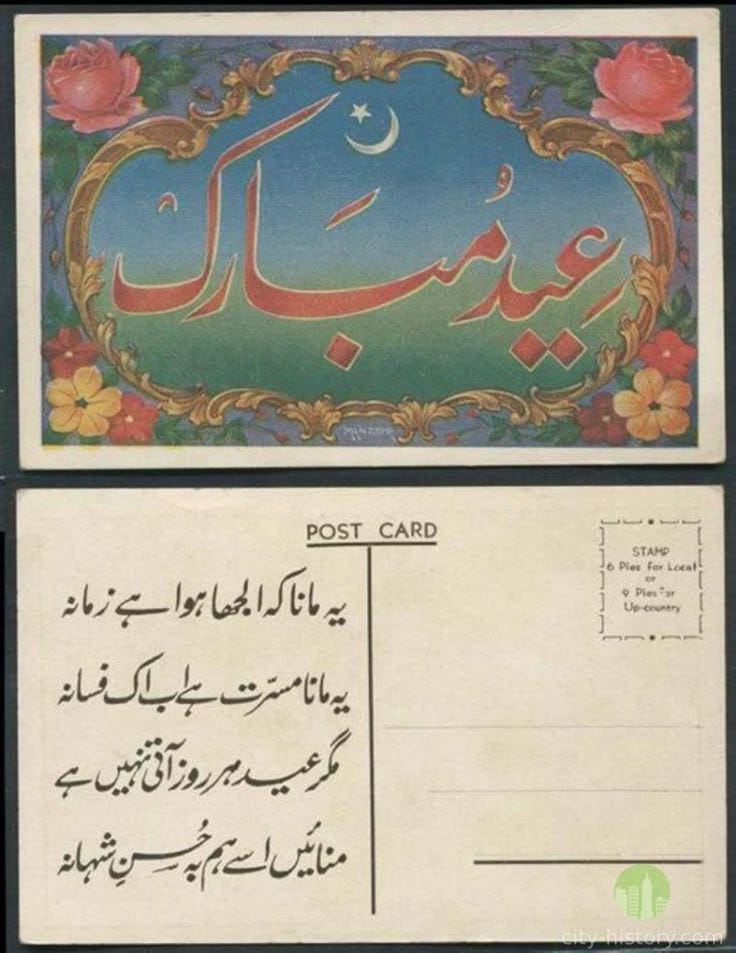 عید مُبَارک
POST CARD
STAMP
6 Pies for Local
or
9 Pies for
Up-country
یہ مانا کہ الجھا ہوا ہے زمانہ
یہ مانا مسرّت ہے اب اک فسانہ
مگر عید ہر روز آتی نہیں ہے
منائیں اسے ہم بہ حُسنِ شہانہ
city-history.com